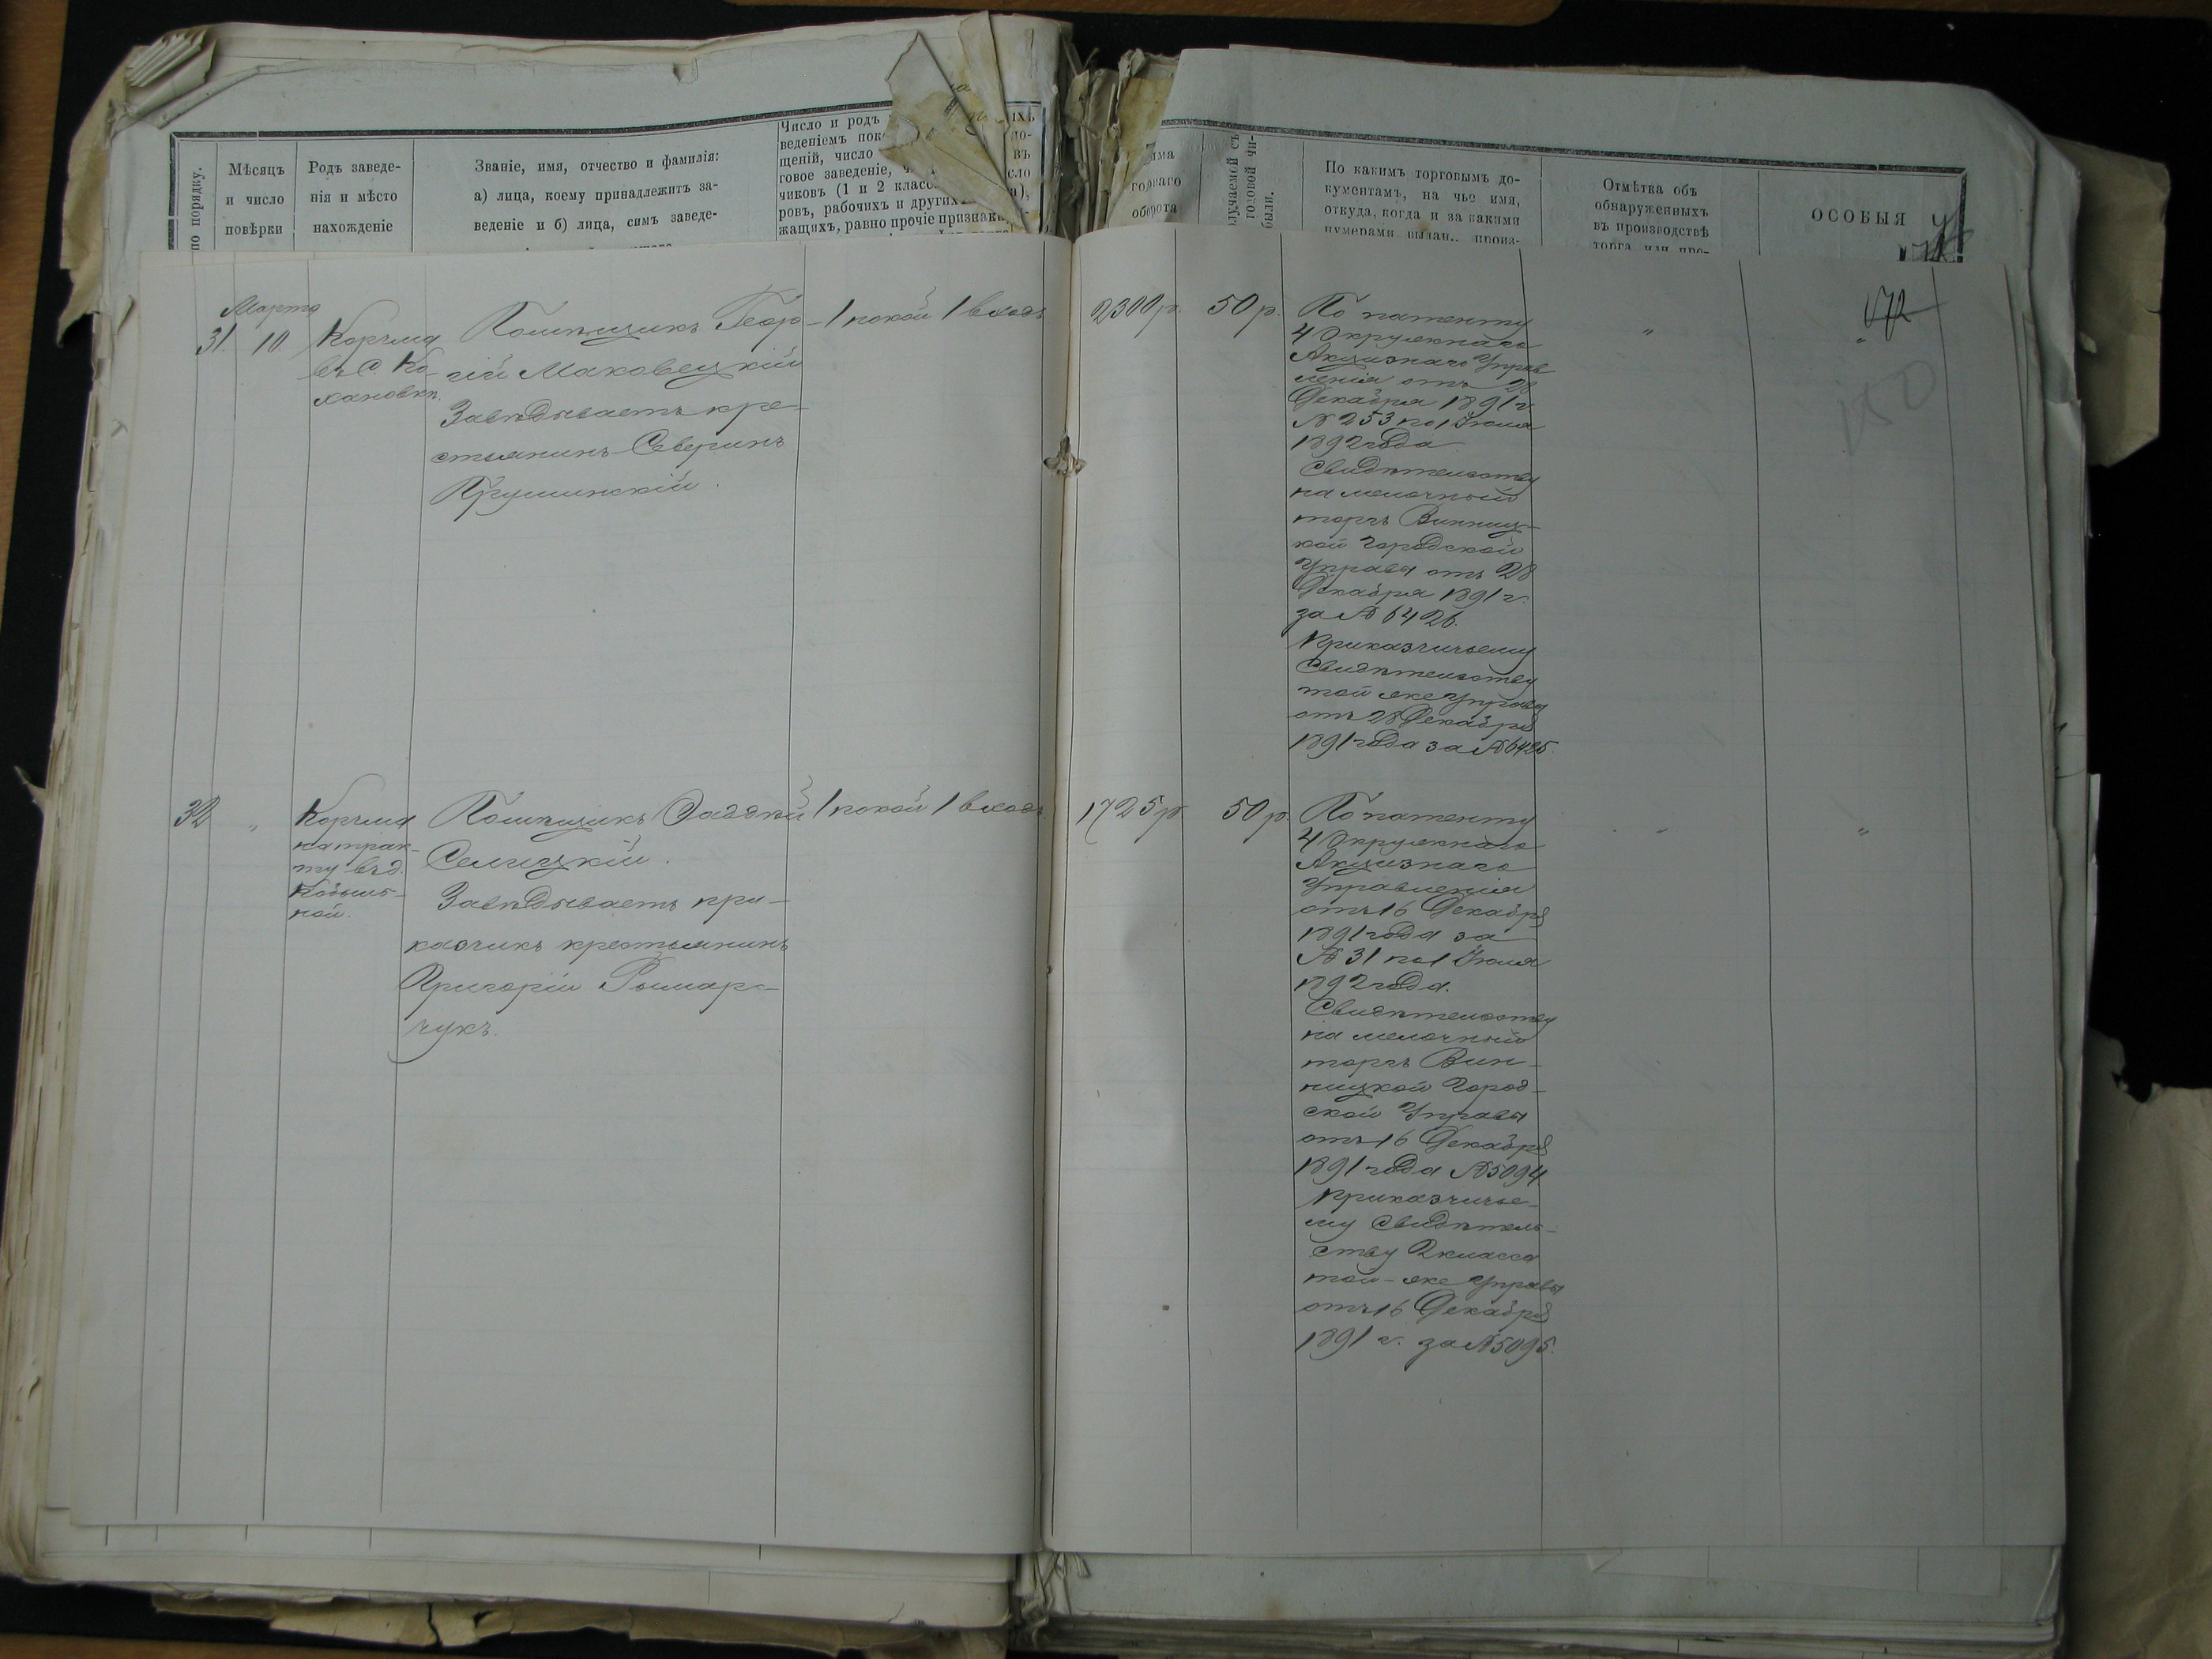 по порядку.
Мѣсяцъ
и число
повѣрки
Родъ заведе-
нія и мѣсто
нахожденіе
Званіе, имя, отчество и фамилія:
а) лица, коему принадлежитъ за-
веденіе и б) лица, симъ заведе-
Число и родъ
веденіемъ
щеній, число
говое заведеніе,
чиковъ (1 и 2
ровъ, рабочихъ и другихъ
жащихъ, равно прочіе признаки
оборота
По какимъ торговымъ до-
кументамъ, на чье имя,
откуда, когда и за какими
нумерами
Отмѣтка объ
обнаруженныхъ
въ производствѣ
ОСОБЫЯ
172
Марта
31. 10. Корчма
въ с. Ко-
хановкѣ.
Помѣщикъ Геор-
гій Маковецкій
Завѣдываетъ кре-
стьянинъ Северинъ
1 покой 1 входъ
2300 р. 50 р.
По патенту
4 Окружнаго
Акцизнаго Управ
ленія отъ 28
Декабря 1891 г.
№ 253 по 1 Іюля
1892 года
Свидѣтельству
на мелочный
торгъ Винниц-
кой Городской
Управы отъ 28
Декабря 1891 г.
за № 6426.
Приказчичьему
Свидѣтельству
той же Управы
отъ 28 Декабря
1891 года за № 6425.
" "
32 " Корчма
на трак-
ту въ д.
Кобыль-
ной.
Помѣщикъ
Селицкій.
Завѣдываетъ при-
казчикъ крестьянинъ
Григорій Рымар-
чукъ.
1 покой 1 входъ
1725 р. 50 р.
По патенту
4 Окружнаго
Акцизнаго
Управленія
отъ 16 Декабря
1891 года за
№ 31 по 1 Іюля
1892 года.
Свидѣтельству
на мелочный
торгъ Вин-
ницкой Город-
ской Управы
отъ 16 Декабря
1891 года № 5094
Приказчичье-
му Свидѣтель-
ству 2 класса
той-же Управы
отъ 16 Декабря
1891 г. за № 5095.
" "